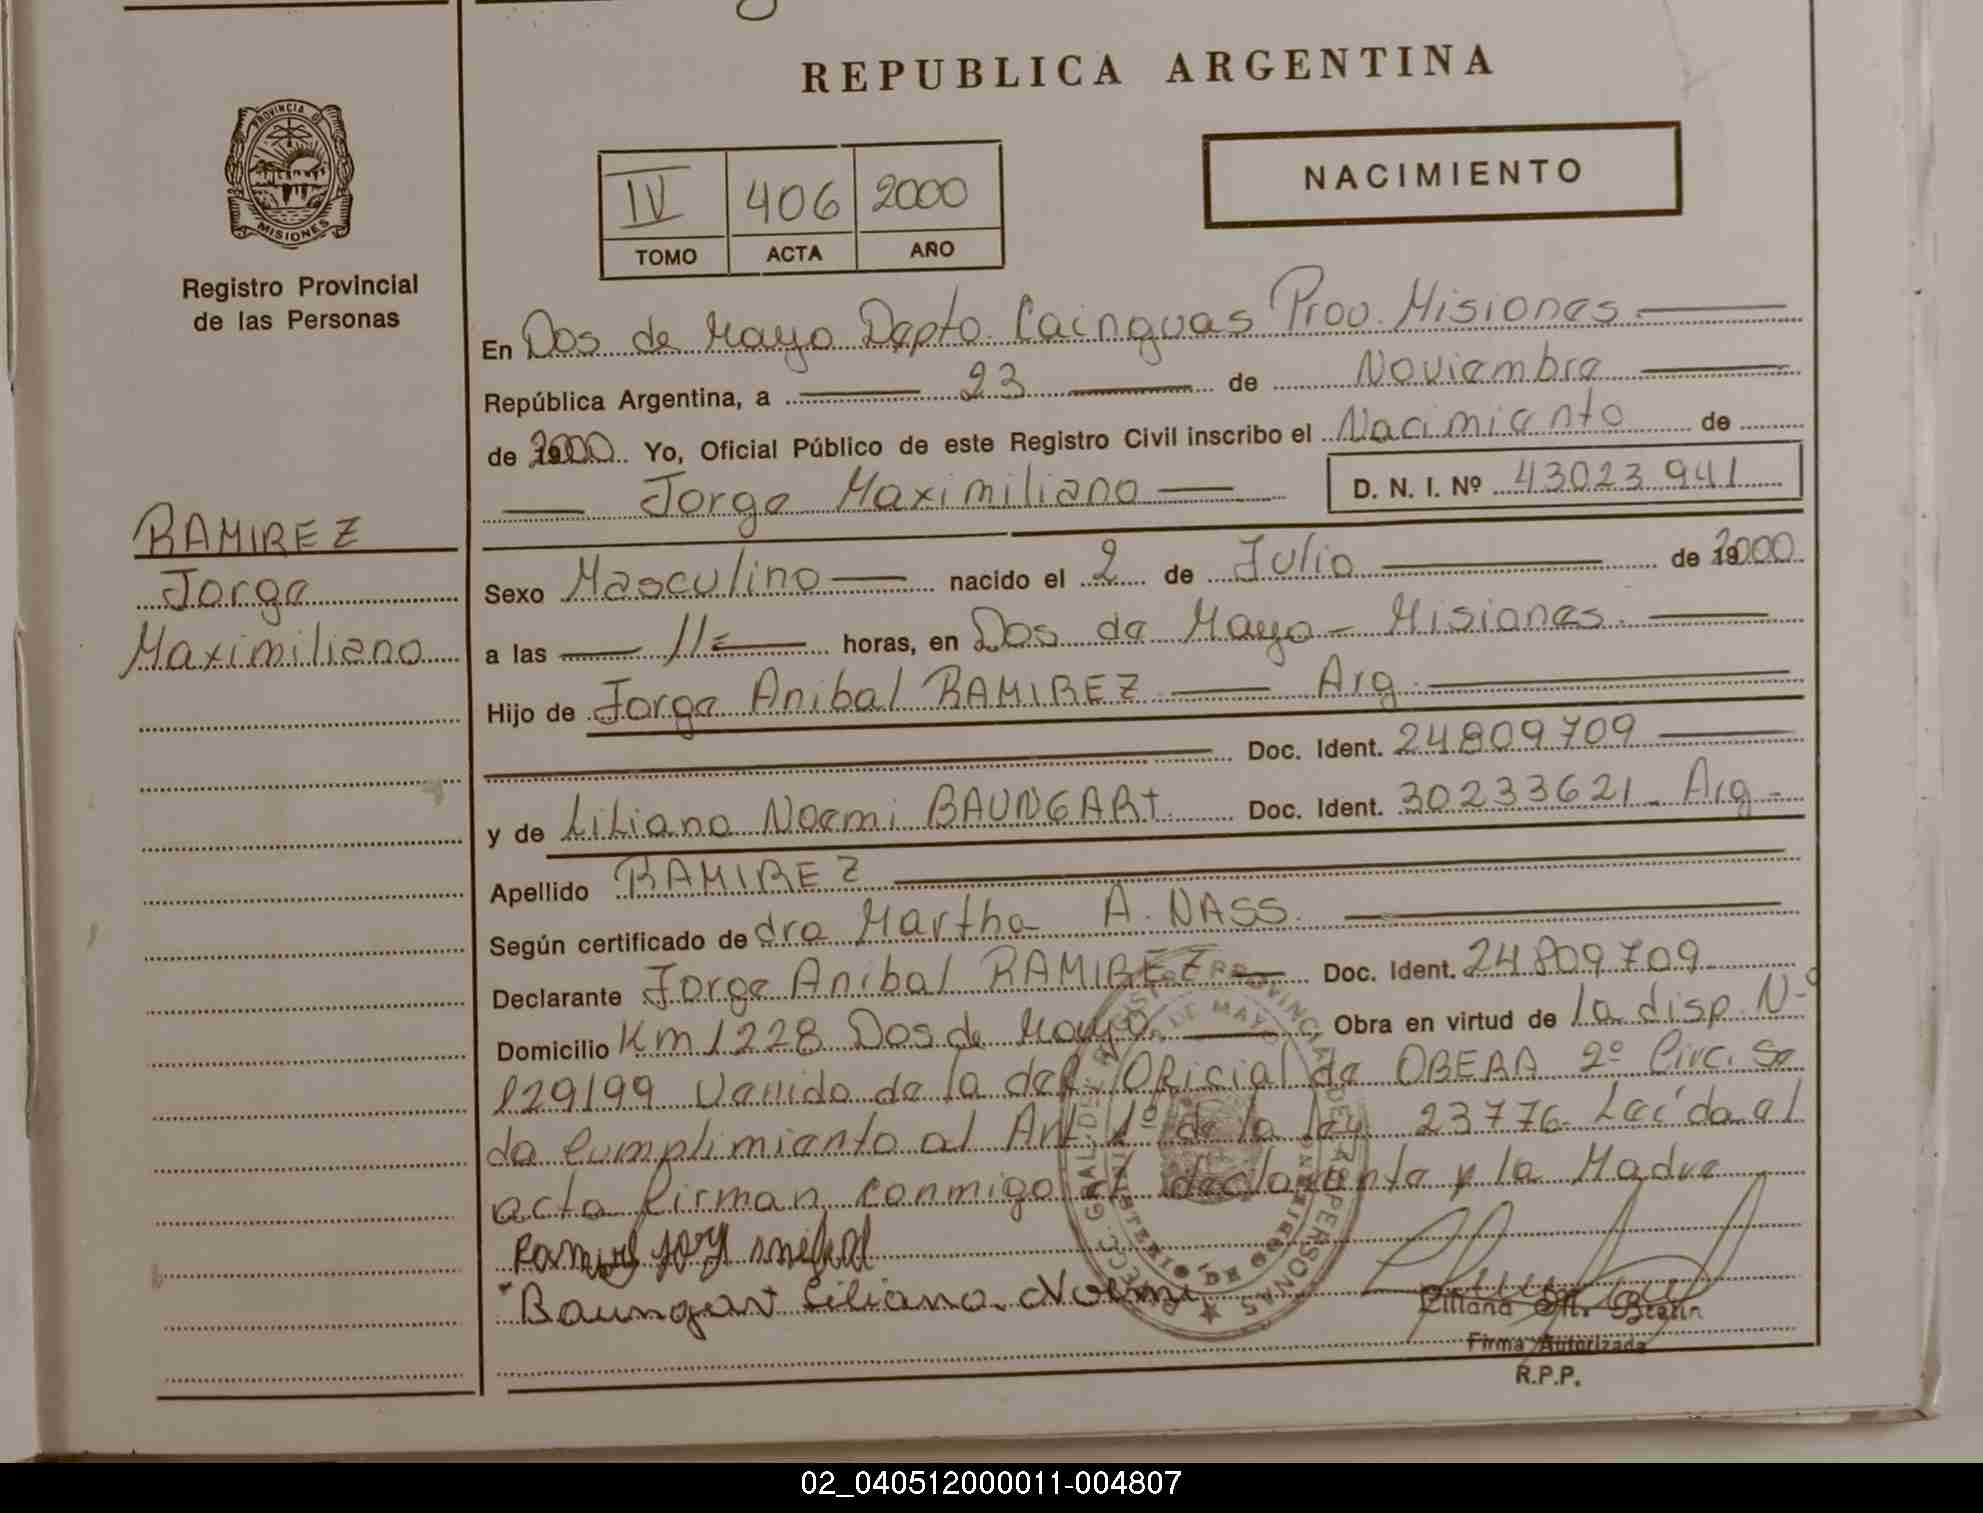 REPUBLICA ARGENTINA
PROVINCIA DE
MISIONES
Registro Provincial
de las Personas
NACIMIENTO
IV 406 2000
TOMO ACTA AÑO
En Dos de Mayo Depto. Cainguas Prov. Misiones
República Argentina, a 23 de Noviembre
de 2000 Yo, Oficial Público de este Registro Civil inscribo el Nacimiento de
Jorge Maximiliano D. N. I. Nº 43023941
RAMIREZ
Jorge
Maximiliano
Sexo Masculino nacido el 2 de Julio de 2000
a las 11 horas, en Dos de Mayo - Misiones.
Hijo de Jorge Anibal RAMIREZ Arg
Doc. Ident. 24809709
y de Liliana Noemi BAUNGART Doc. Ident. 30233621 - Arg -
Apellido RAMIREZ
Según certificado de dra Martha A. NASS.
Declarante Jorge Anibal RAMIREZ Doc. Ident. 24809709
Domicilio Km 1228 Dos de Mayo Obra en virtud de la disp. Nº
129/99 de la del. Oficial de OBERA 2º Circ. Se
da cumplimiento al Art 1º de la Ley 23776. Leída el
acta firman conmigo el declarante y la Madre
Baungart Liliana Noemi
Firma Autorizada
R.P.P.
02_040512000011-004807